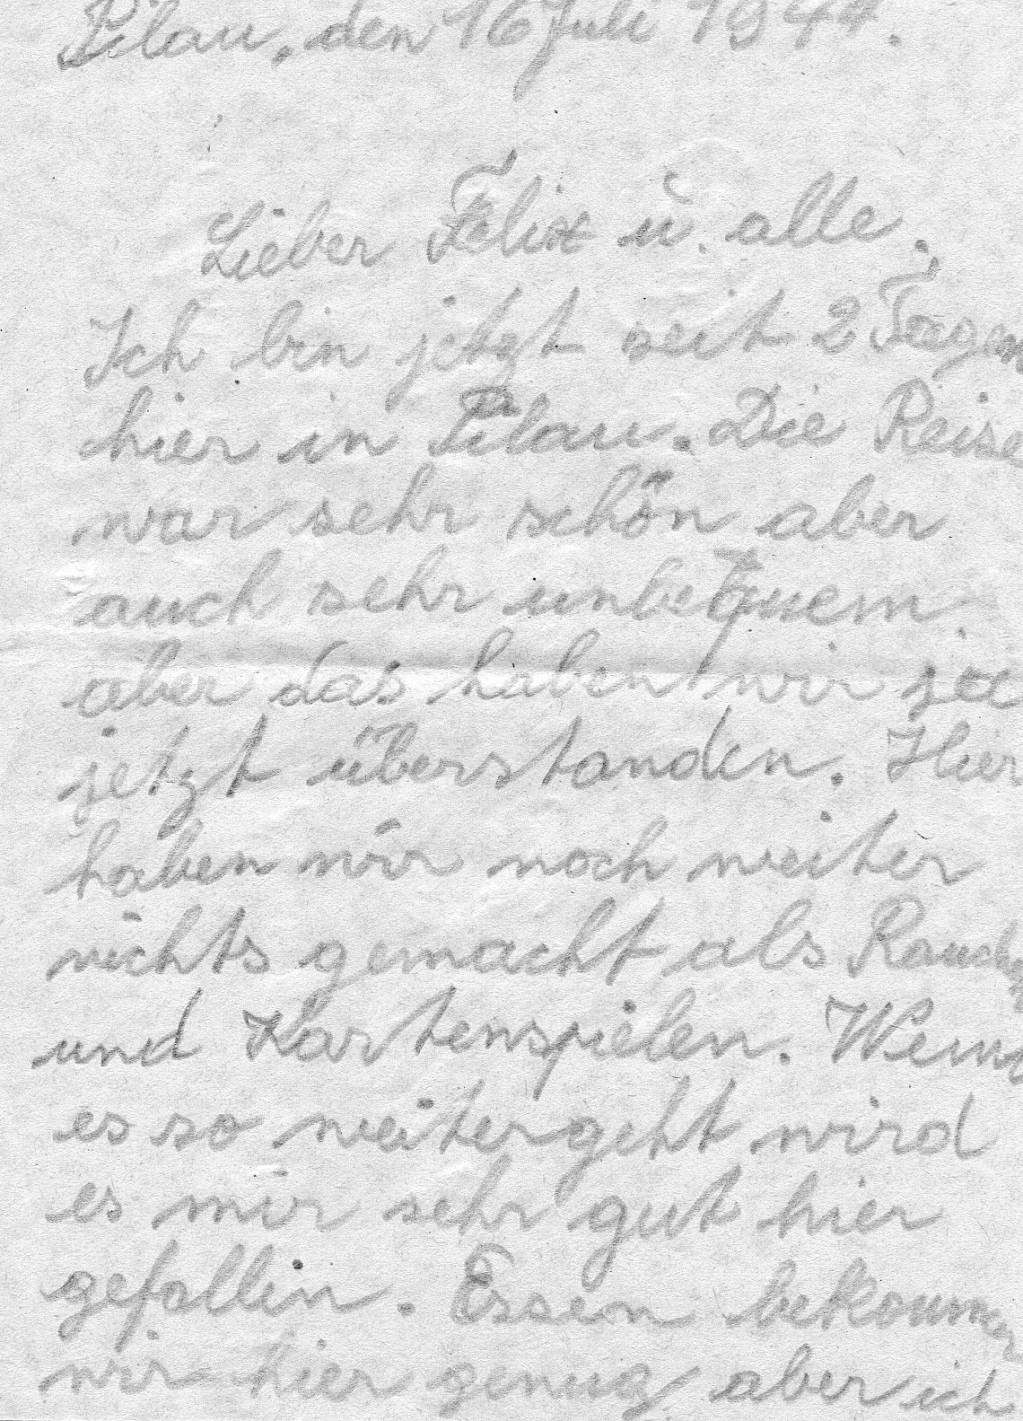 Pilau, den 16 Juli 1944.
Lieber Felix u. alle.,
Ich bin jetzt seit 2 Tagen
hier in Pilau. Die Reise
war sehr schön aber
auch sehr unbequem.
aber das haben wir ja
jetzt überstanden. Hier
haben wir noch weiter
nichts gemacht als Rauchen
und Kartenspielen. Wenn
es so weitergeht wird
es mir sehr gut hier
gefallen. Essen bekommen
wir hier genug, aber ich